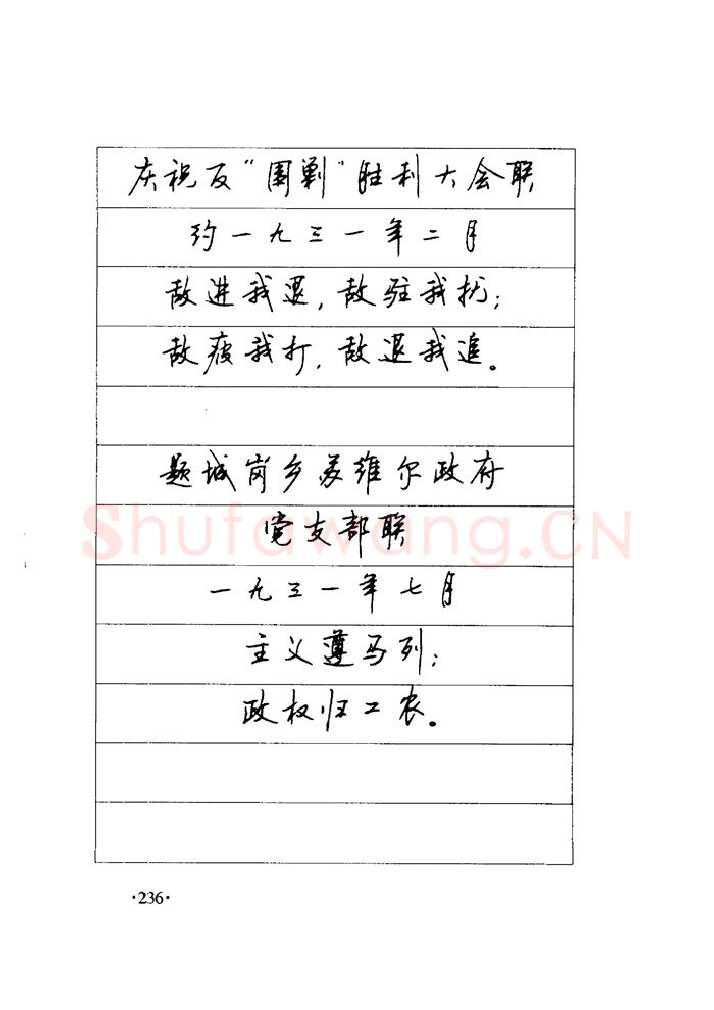 庆祝反“围剿”胜利大会联
约一九三一年二月
敌进我退，敌驻我扰；
敌疲我打，敌退我追。
题城岗乡苏维尔政府
党支部联
Shufawang.CN
一九三一年七月
主义遵马列；
政权归工农。
·236·